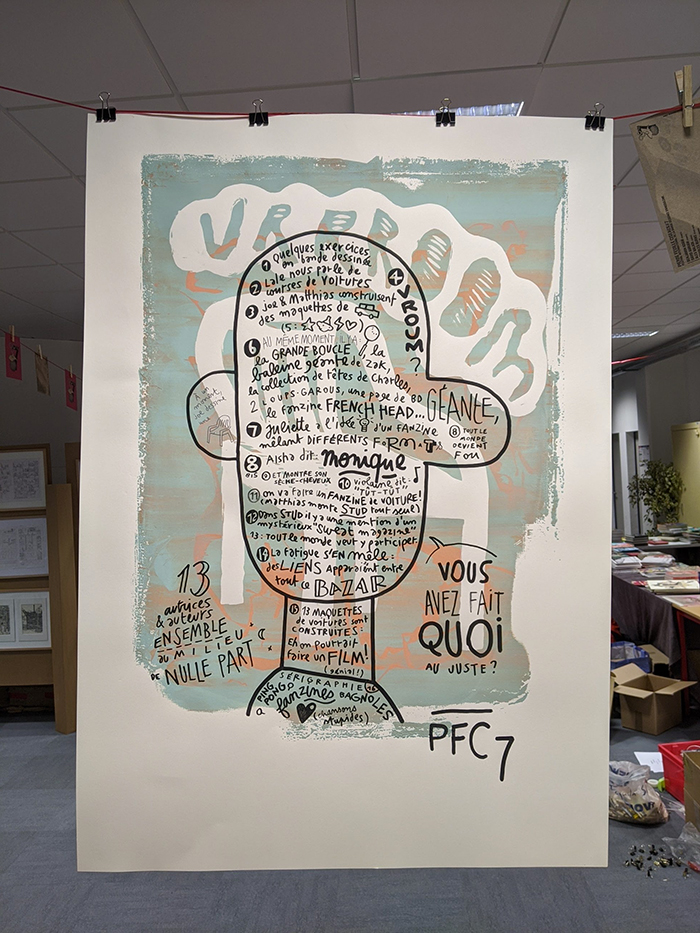 VRRROOM
1 Quelques exercices
en bande dessinée
2 Lale nous parle de
courses de voitures
3 Joe & Matthias construisent
des maquettes de
(5:
4 VROUM?
6 AU MÊME MOMENT, IL Y A:
la GRANDE BOUCLE, la
baleine géante de zak,
la collection de têtes de Charles,
2 LOUPS-GAROUS, une page de BD GÉANTE,
le fanzine FRENCH HEAD...
7 Juliette a l'idée d'un FANZINE
mêlant DIFFÉRENTS FORMATS
8 TOUT LE
MONDE
DEVIENT
FOU
8 BIS Aisha dit: monique
9 ET MONTRE SON
SÈCHE-CHEVEUX
10 violaine dit:
"TUT-TUT"
11 on va faire un FANZINE DE VOITURE!
(matthias monte STUD tout seul)
12 Dans STUD il y a une mention d'un
mystérieux "Sweat magazine"
13: TOUT le monde veut y participer
14 La fatigue S'EN mêle:
des LIENS apparaîent entre
tout ce BAZAR
15 13 MAQUETTES
de voitures sont
CONSTRUITES:
Eh on pourrait
faire un FILM!
(génial!)
SÉRIGRAPHIE 16
PING
PONGO
fanzines BAGNOLES
(chansons
stupides)
13
autrices
& auteurs
ENSEMBLE
au MILIEU
DE NULLE PART
VOUS
AVEZ FAIT
QUOI
AU JUSTE?
PFC7